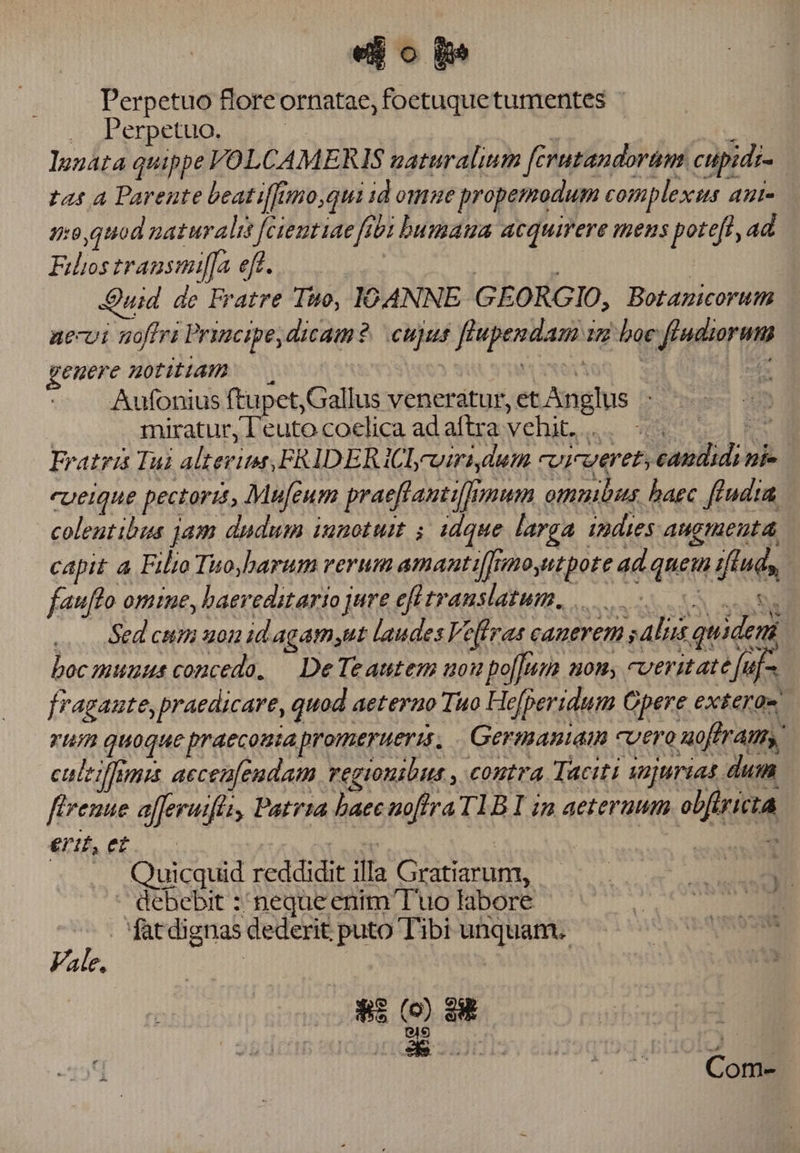 o
Perpetuo flore ornatae, foetuque tumentes
Perpetuo.
Innata quippe VOLCAMERIS naturalium ſcrutandorum cupidi-
tas a Parente beatiſſimo, qui id omne propemodum complexus ani-
mo, quod naturalis ſcientiae ſibi humana acquirere mens poteſt, ad
Filios transmiſſa eſt.
Quid de Fratre Tuo, IOANNE GEORGIO, Botanicorum
aevi noſtri Principe, dicam? cujus ſtupendam in hoc ſtudiorum
genere notitiam
Auſonius ſtupet, Gallus veneratur, et Anglus
miratur, Teuto coelica ad aſtra vehit.
Fratris Tui alterius, FRIDERICI, viri, dum viveret, candidi ni-
veique pectoris, Muſeum praeſtantiſſimum omnibus haec ſtudia
colentibus jam dudum innotuit ; idque larga indies augmenta
capit a Filio Tuo, harum rerum amantiſſimo, utpote ad quem iſtud,
fauſto omine, haereditario jure eſt translatum.
Sed cum non id agam, ut laudes Veſtras canerem ; aliis quidem
hoc munus concedo. De Te autem non poſſum non, veritate ſuf-
fragante, praedicare, quod aeterno Tuo Heſperidum Opere extero-
rum quoque praeconia promerueris. Germaniam vero noſtram,
cultiſſimis accenſendam regionibus, contra Taciti injurias dum
ſtrenue aſſeruiſti, Patria haec noſtra TIBI in aeternum obſtricta
erit, et
Quicquid reddidit illa Gratiarum,
debebit : neque enim Tuo labore
ſat dignas dederit, puto Tibi unquam.
Vale.
(o)
Com-